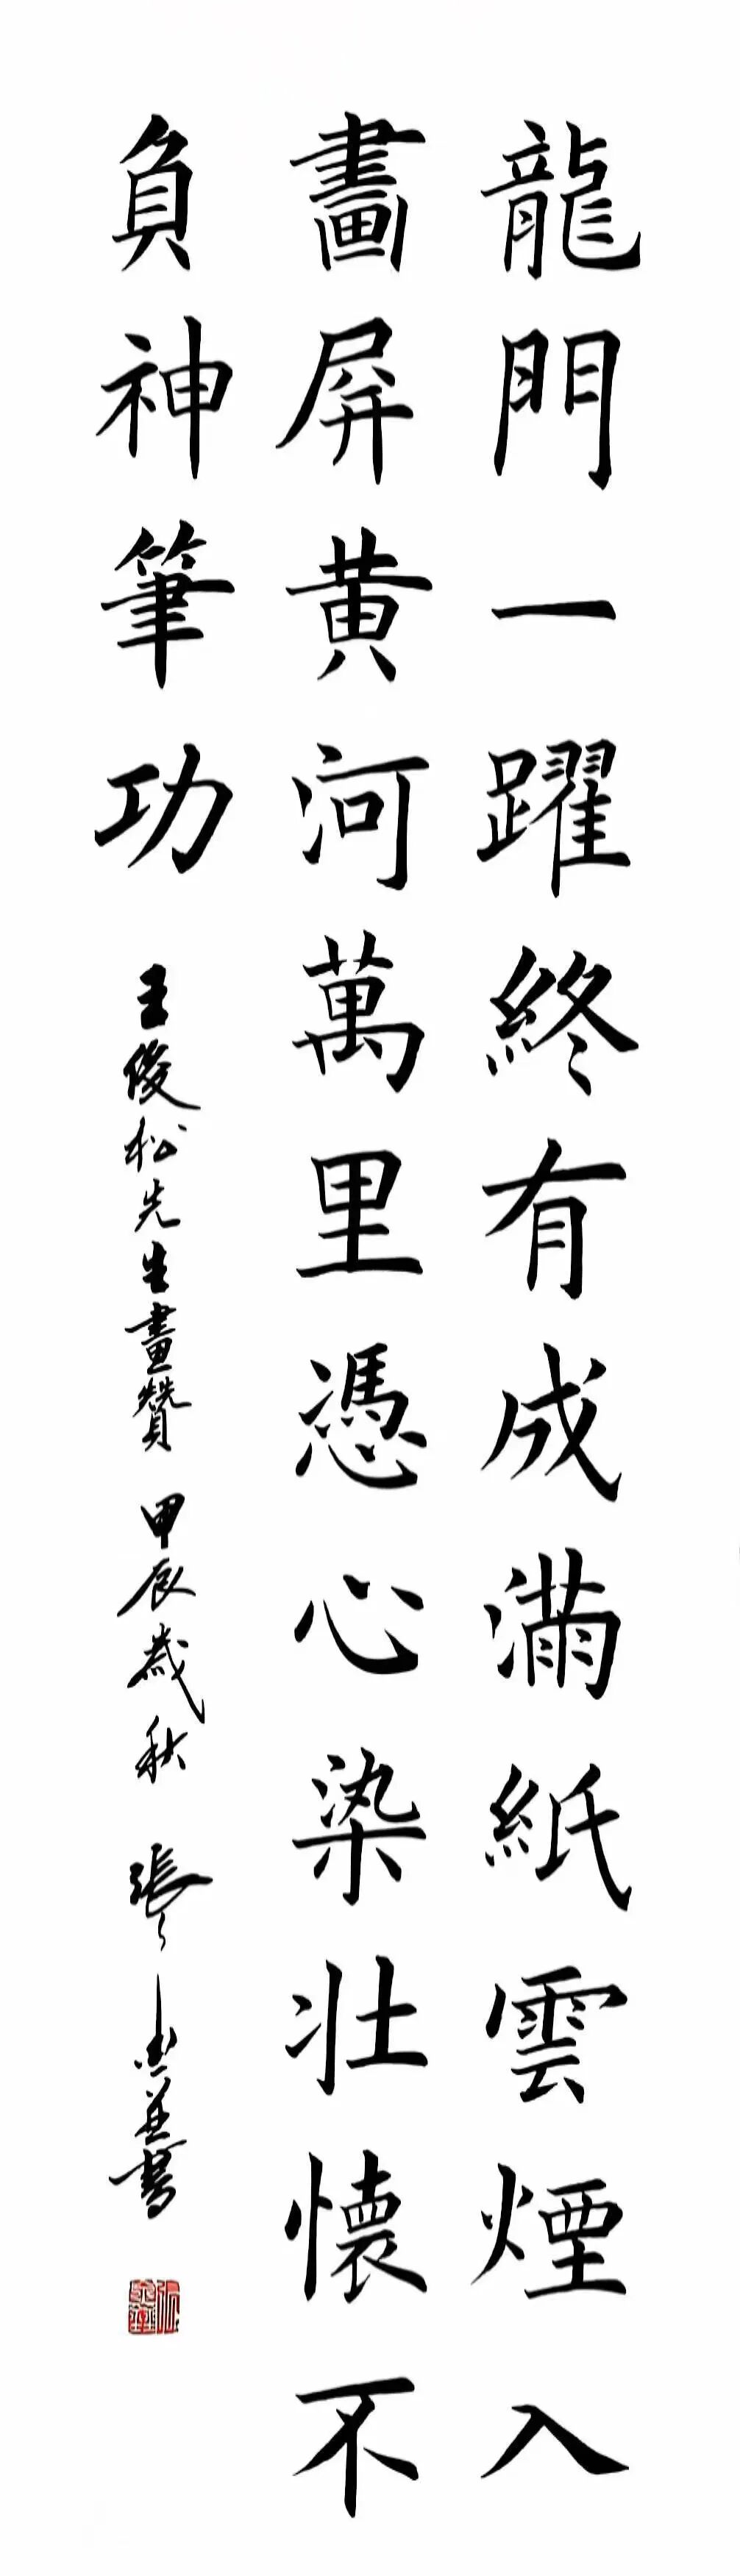 龍門一躍終有成滿紙雲煙入
畫屏黄河萬里憑心染壯懷不
負神筆功
王俊松先生畫贊 甲辰歲秋 張 書